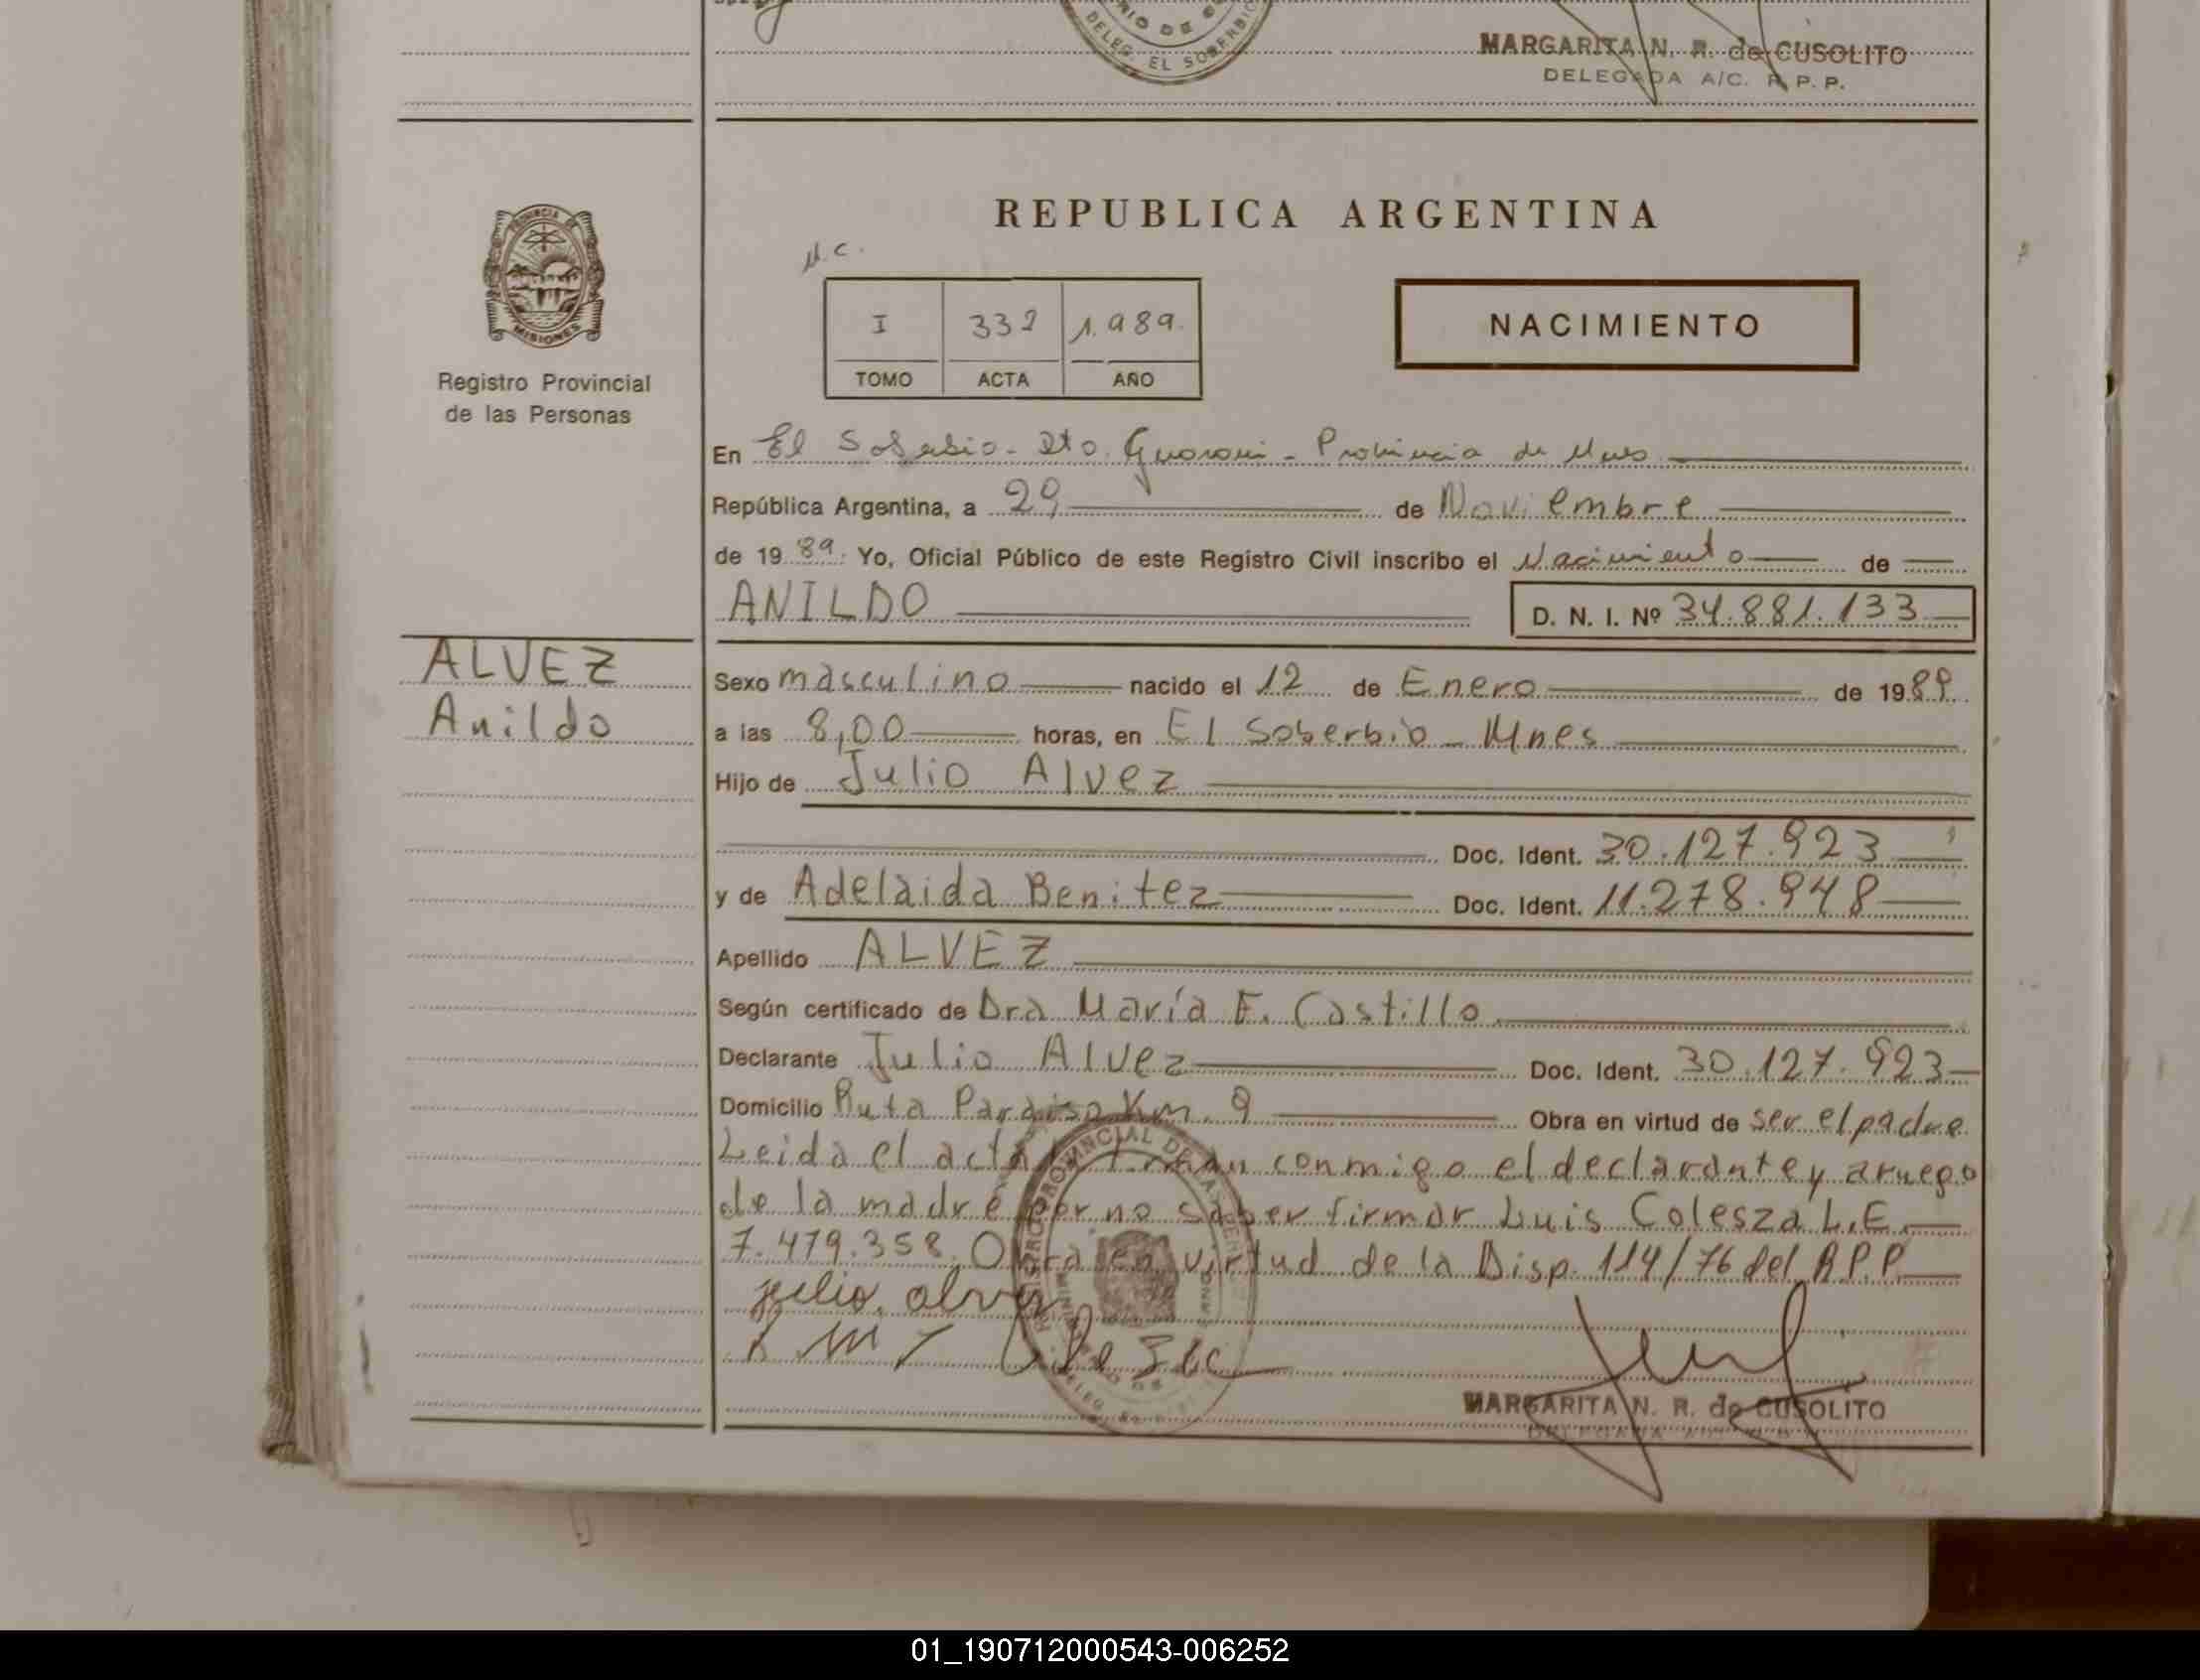 DELEG. EL SOBERBIO
MARGARITA N. R. de CUSOLITO
DELEGADA A/C. R. P. P.
PROVINCIA DE
MISIONES
Registro Provincial
de las Personas
REPUBLICA ARGENTINA
M.C.
I 332 1.989.
TOMO ACTA AÑO
NACIMIENTO
En El Soberbio - Dto. Guarani - Provincia de Mnes
República Argentina, a 29 de Noviembre
de 1989. Yo, Oficial Público de este Registro Civil inscribo el Nacimiento de
ANILDO D. N. I. Nº 34.881.133
ALVEZ
Anildo
Sexo masculino nacido el 12 de Enero de 1989
a las 8,00 horas, en El Soberbio - Mnes
Hijo de Julio Alvez
Doc. Ident. 30.127.923
y de Adelaida Benitez Doc. Ident. 11.278.948
Apellido ALVEZ
Según certificado de Dra María E. Castillo
Declarante Julio Alvez Doc. Ident. 30.127.923
Domicilio Ruta Paraiso Km. 9 Obra en virtud de ser el padre
Leida el acta firman conmigo el declarante y aruego
de la madre por no saber firmar Luis Colesza L.E.
7.479.358. Obra en virtud de la Disp. 114/76 del R.P.P
julio alvez
MARGARITA N. R. de CUSOLITO
01_190712000543-006252